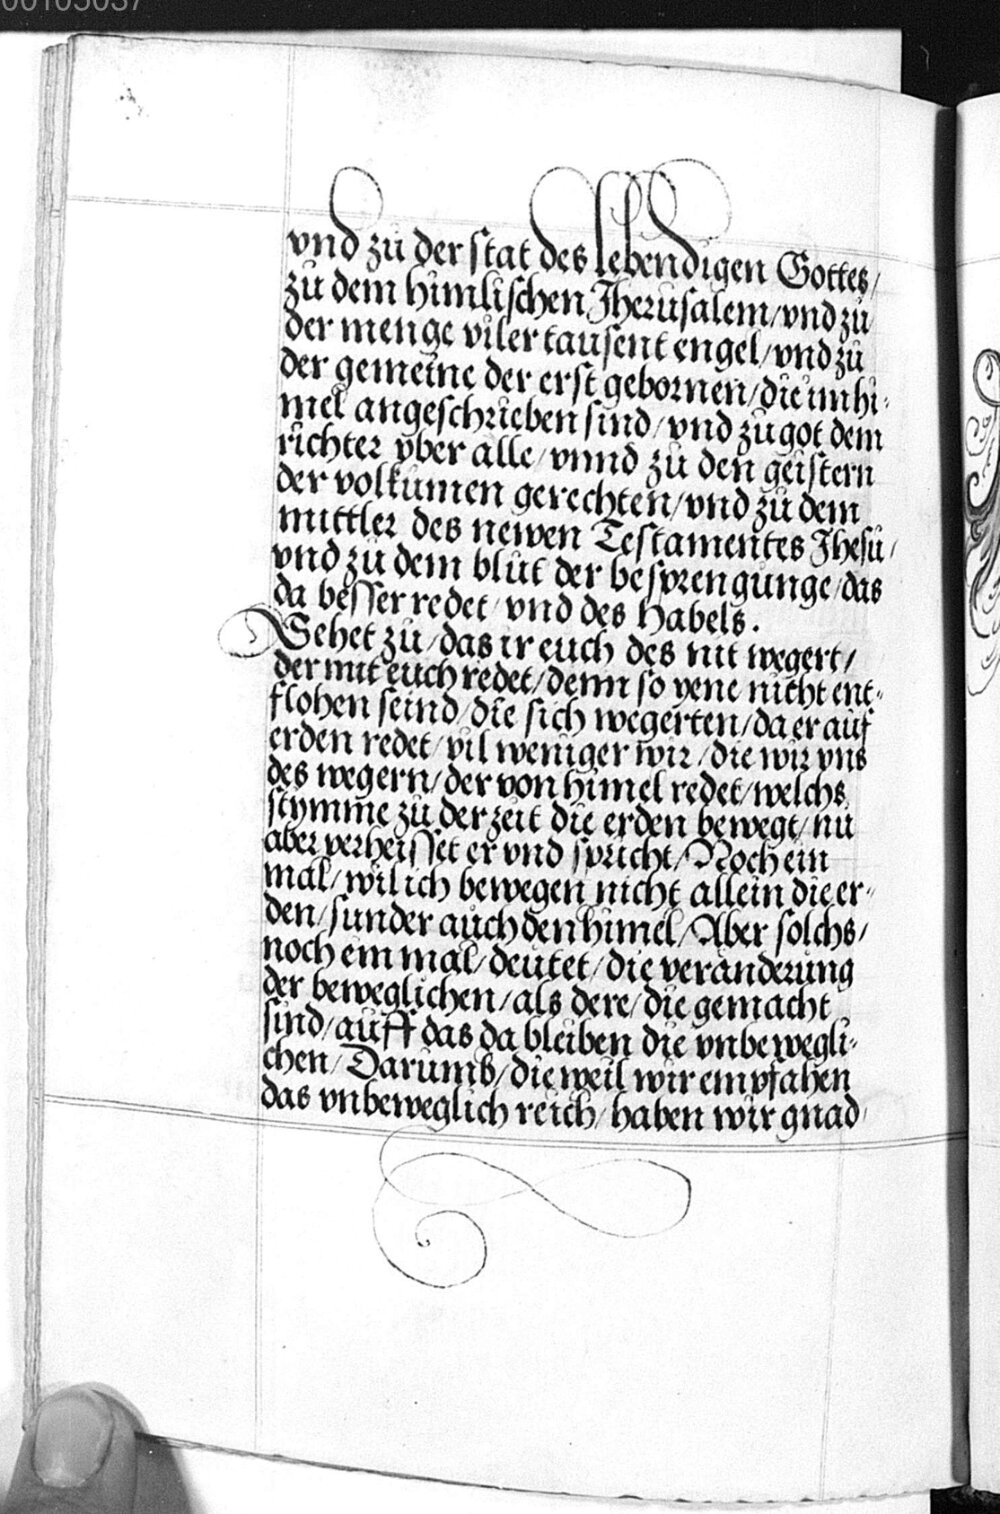 00105037
vnd zů der stat des lebendigen Gottes/
zů dem himlischen Jherusalem/vnd zů
der menge viler tausent engel/vnd zů
der gemeine der erst gebornen/die im hi-
mel angeschrieben sind/vnd zů got dem
richter yber alle/vnnd zů den geistern
der volkumen gerechten/vnd zů dem
mittler des newen Testamentes Jhesu/
vnd zů dem blůt der besprengunge/das
da besser redet/vnd des Habels.
Sehet zů/das ir euch des nit wegert/
der mit euch redet/denn so yene nicht ent-
flohen seind/die sich wegerten/da er auf
erden redet/vil weniger wir/die wir vns
des wegern/der von himel redet/welchs
stymme zů der zeit die erden bewegt/nu
aber verheisset er vnd spricht/Noch ein
mal/wil ich bewegen nicht allein die er-
den/sunder auch den himel/Aber solchs/
noch ein mal/deutet/die veranderung
der beweglichen/als dere/die gemacht
sind/auff das da bleiben die vnbewegli-
chen/Darumb/die weil wir empfahen
das vnbeweglich reich/haben wir gnad/